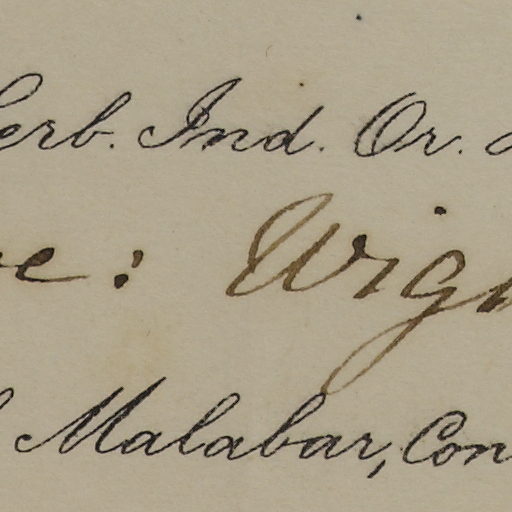 Herb. Ind. Or.
: Wigh
Malabar, Con